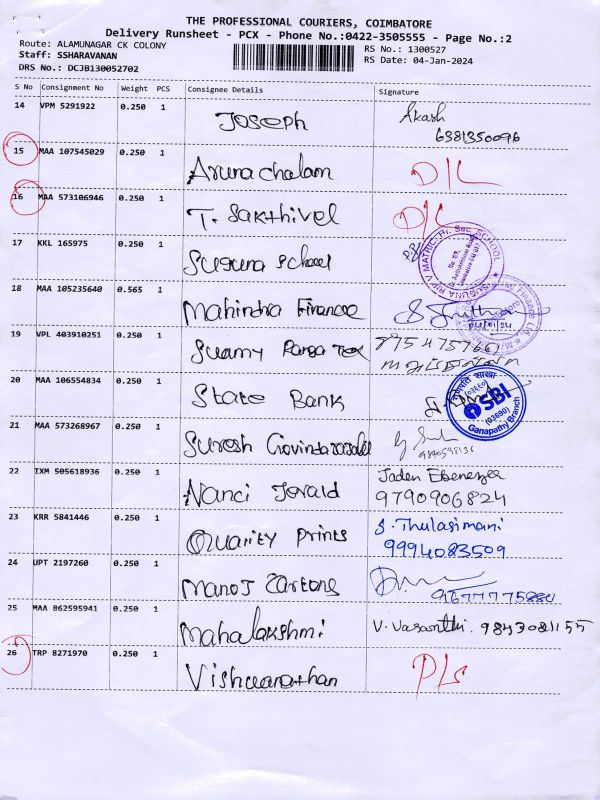 THE PROFESSIONAL COURIERS, COIMBATORE
Delivery Runsheet - PCX - Phone No.:0422-3505555 - Page No.:2
Route: ALAMUNAGAR CK COLONY
RS No.: 1300527
Staff: SSHARAVANAN
RS Date: 04-Jan-2024
DRS No.: DCJB130052702
S No Consignment No Weight PCS Consignee Details Signature
14 VPM 5291922 0.250 1 Joseph Akash
6381350096
15 MAA 107545029 0.250 1 Arunachalam D/L
16 MAA 573106946 0.250 1 T. Sakthivel D/L
17 KKL 165975 0.250 1 Suguna School
18 MAA 105235640 0.565 1 Mahindra Finance
04/01/24
19 VPL 403910251 0.250 1 Swamy Ranga Tex
20 MAA 106554834 0.250 1 State Bank
SBI
(03690)
Ganapathy Branch
21 MAA 573268967 0.250 1 Suresh
22 IXM 505618936 0.250 1 Nanci Jerald Jaden Ebenezer
9790906824
23 KRR 5841446 0.250 1 Quality Prints S. Thulasimani
9994083509
24 UPT 2197260 0.250 1 Manoj Cartons
25 MAA 862595941 0.250 1 Mahalakshmi V. Vasanthi. 9843081155
26 TRP 8271970 0.250 1 Vishwanathan